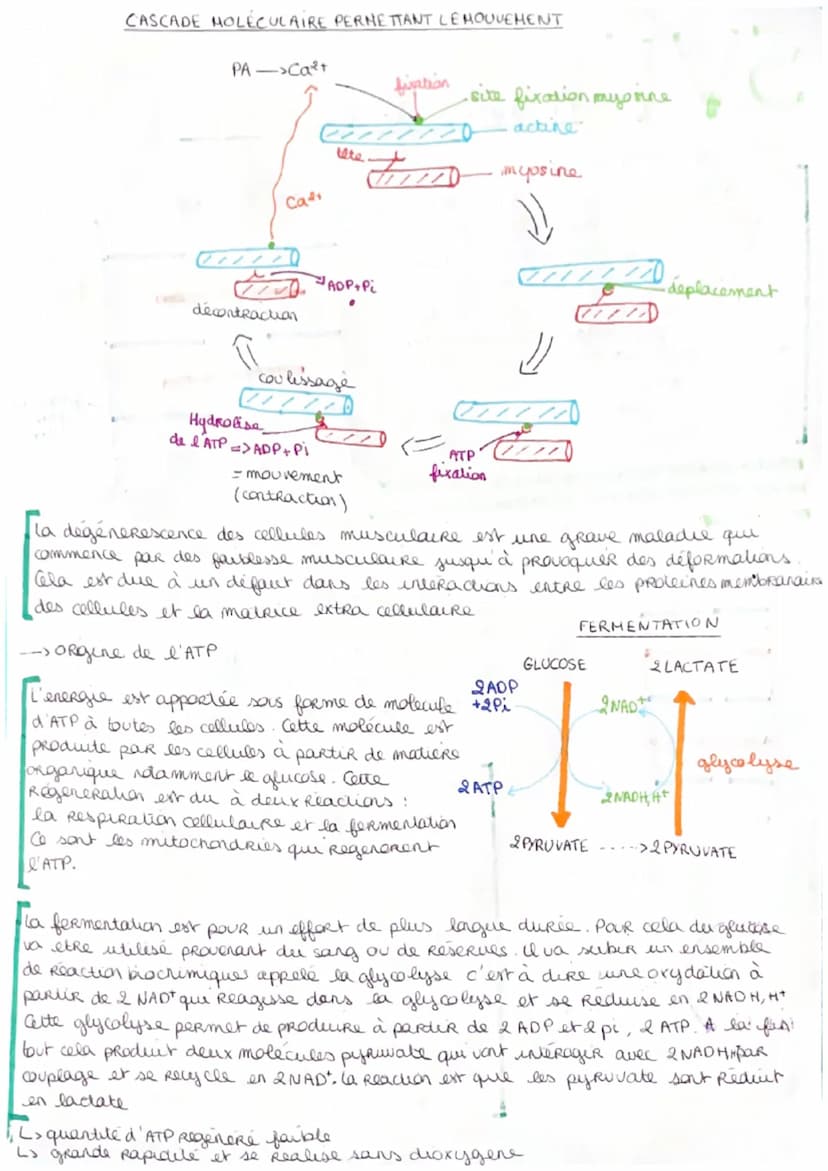 CASCADE MOLÉCULAIRE PERMETTANT LE MOUVEMENT
PA —> Ca²⁺
fixation
site fixation myosine
actine
tête
myosine
Ca²⁺
ADP+Pi
décontraction
déplacement
coulissage
Hydrolise
de l'ATP => ADP+Pi
= mouvement
(contraction)
ATP
fixation
La dégénerescence des cellules musculaire est une grave maladie qui
commence par des faiblesse musculaire jusqu'à provoquer des déformations.
Cela est due à un défaut dans les interactions entre les protéines membranaire
des cellules et la matrice extra cellulaire
FERMENTATION
—> origine de l'ATP
GLUCOSE
2 LACTATE
2ADP
+2Pi
2NAD⁺
glycolyse
2ATP
2NADH,H⁺
2PYRUVATE ----> 2PYRUVATE
L'énergie est apportée sous forme de molécule
d'ATP à toutes les cellules. Cette molécule est
produite par les cellules à partir de matière
organique notamment le glucose. Cette
régéneration est du à deux réactions :
la respiration cellulaire et la fermentation
Ce sont les mitochondries qui régénérent
l'ATP.
La fermentation est pour un effort de plus longue durée. Pour cela du glucose
va être utilisé provenant du sang ou de réserves. Il va subir un ensemble
de réaction biochimiques appelé la glycolyse c'est à dire une oxydation à
partir de 2 NAD⁺ qui réagisse dans la glycolyse et se réduise en 2NADH,H⁺
Cette glycolyse permet de produire à partir de 2 ADP et 2 pi, 2 ATP. A la fin
tout cela produit deux molécules pyruvate qui vont intéragir avec 2NADH,H⁺ par
couplage et se recycle en 2NAD⁺. La réaction est que les pyruvate sont réduit
en lactate
↳ quantité d'ATP régénéré faible
↳ grande rapidité et se réalise sans dioxygène